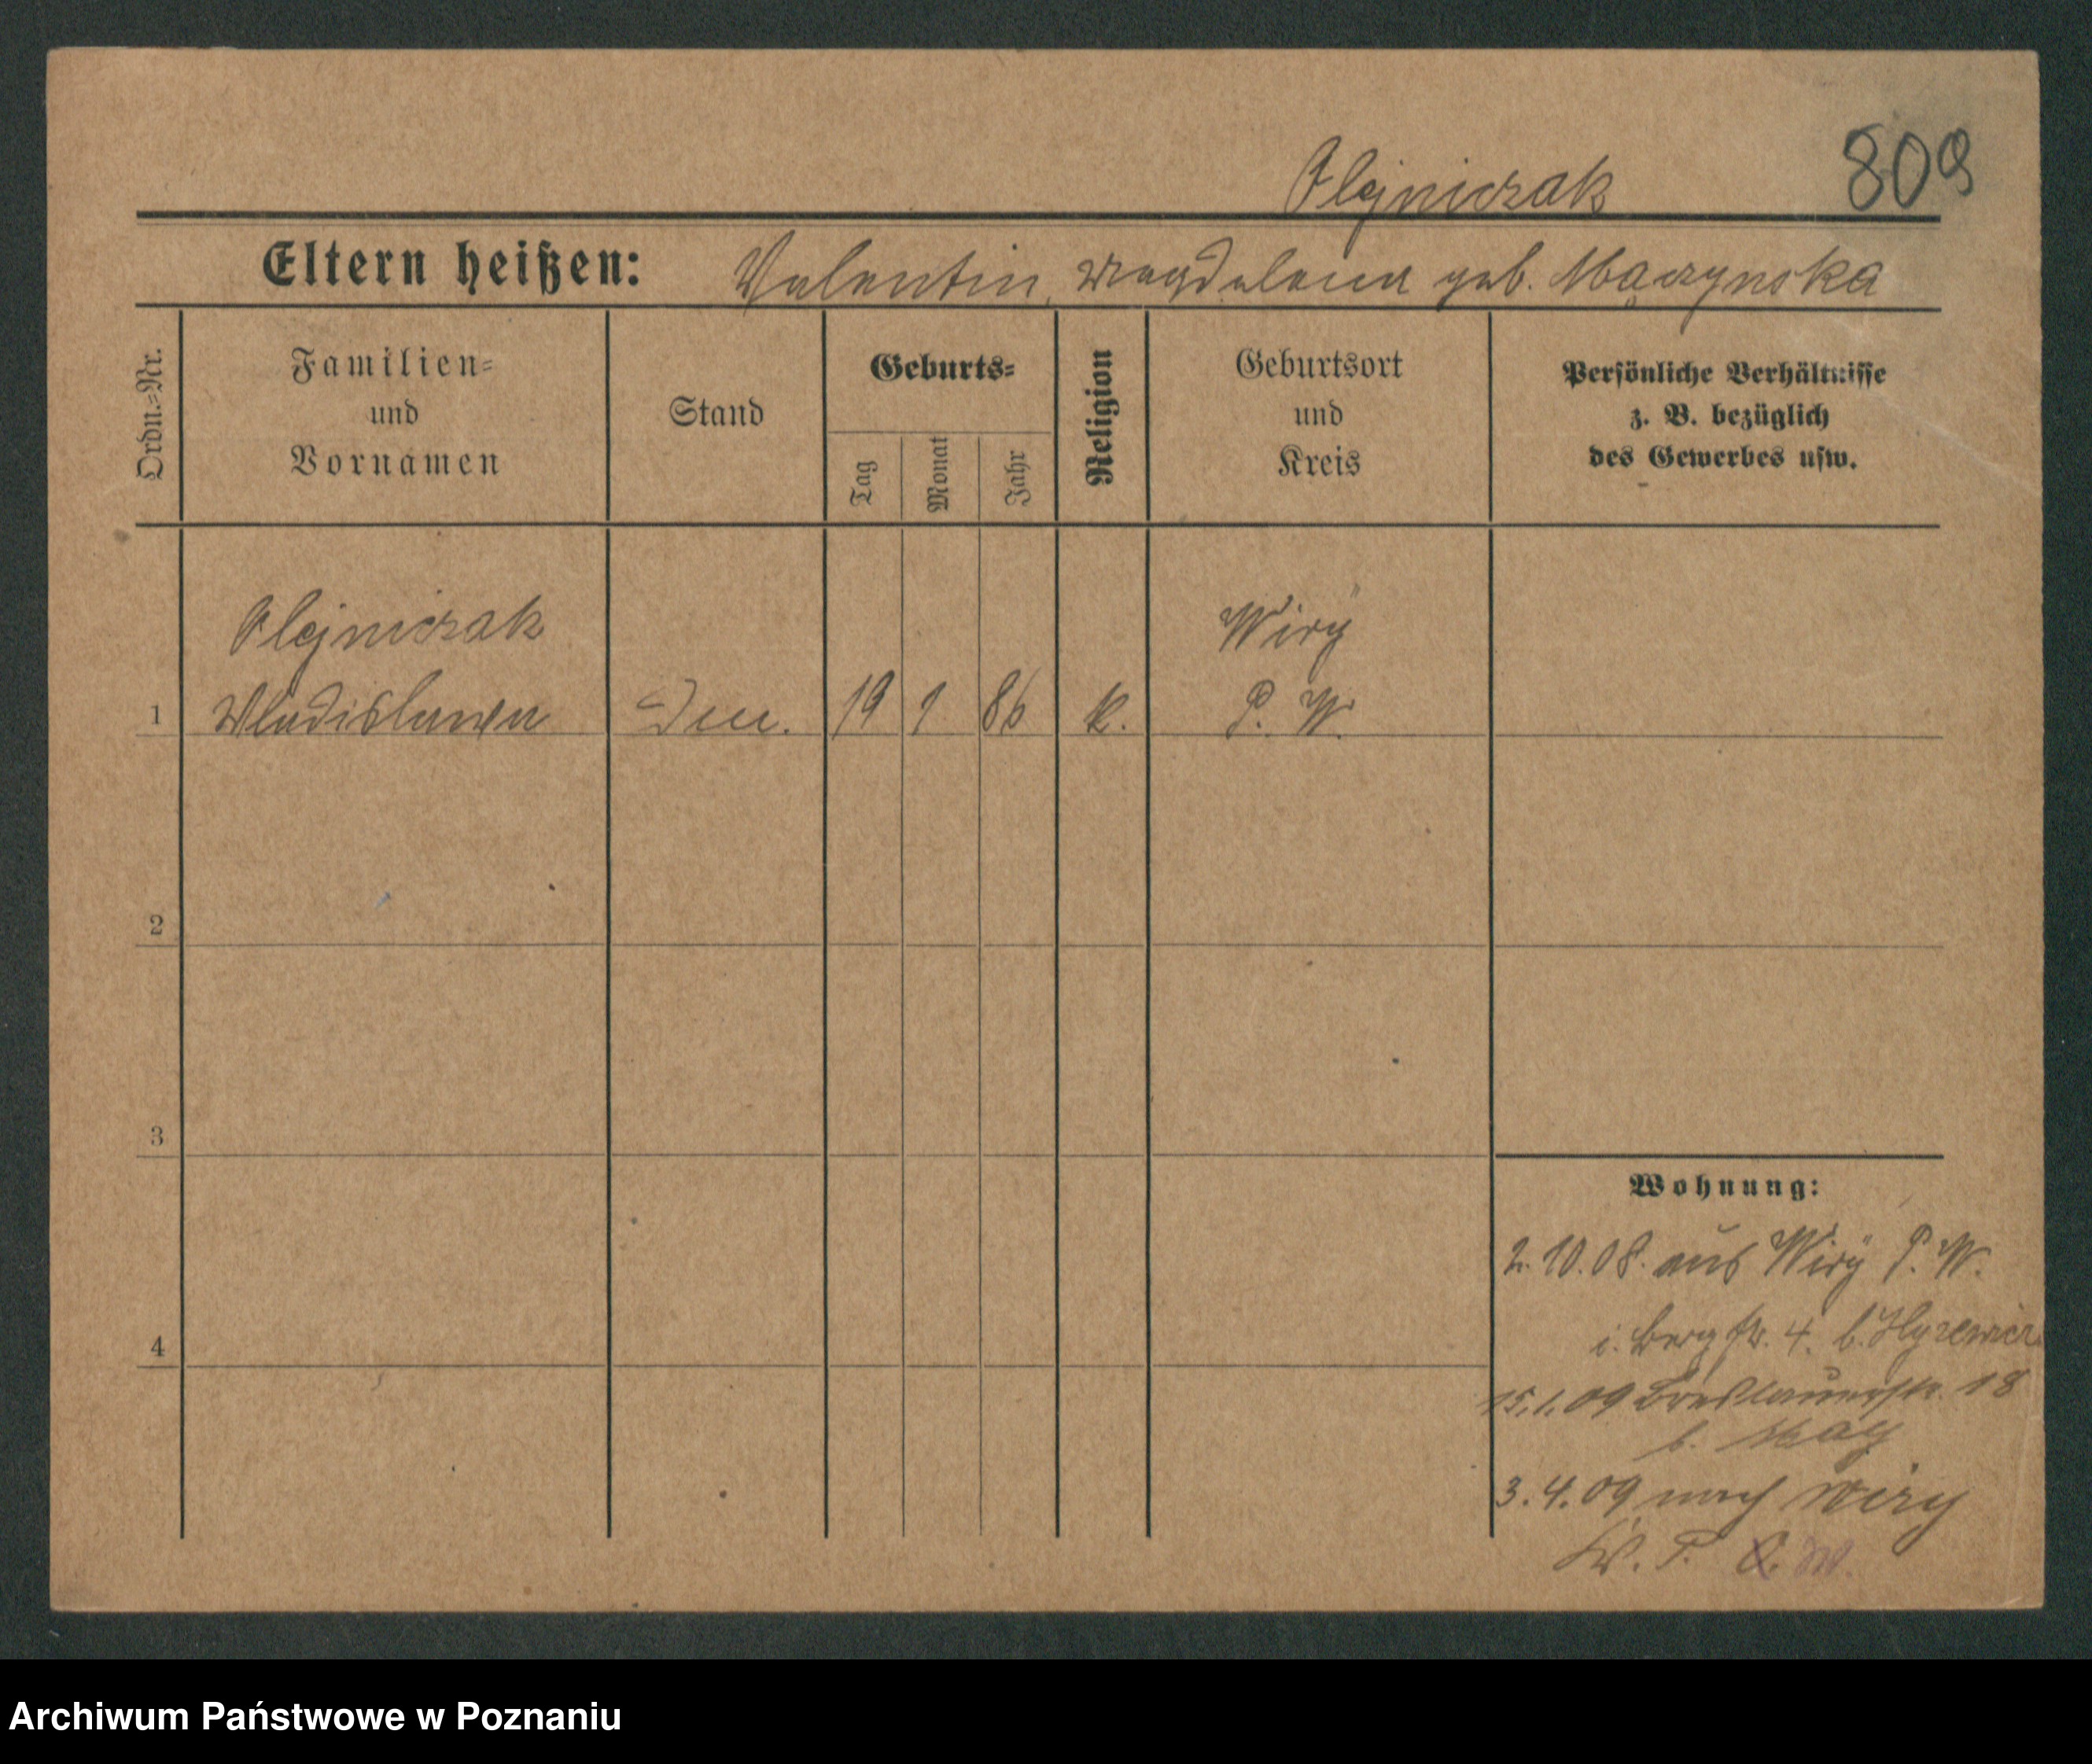 Olejniczak 809
Eltern heißen: Valentin, Magdalena geb. Mączynska
Ordn.=Nr.
Familien=
und
Vornamen
Stand
Geburts=
Tag
Monat
Jahr
Religion
Geburtsort
und
Kreis
Persönliche Verhältnisse
z. B. bezüglich
des Gewerbes usw.
Olejniczak Wirÿ
1 Wladislawa 19 1 86 k. P. W.
2
3
4
Wohnung:
2.10.08. aus Wirÿ P. W.
i. Bergstr. 4. b. Hyzewicz
15.1.09 Breslauerstr. 18
b. May
3.4.09 nach Wiry
P. W.
Archiwum Państwowe w Poznaniu